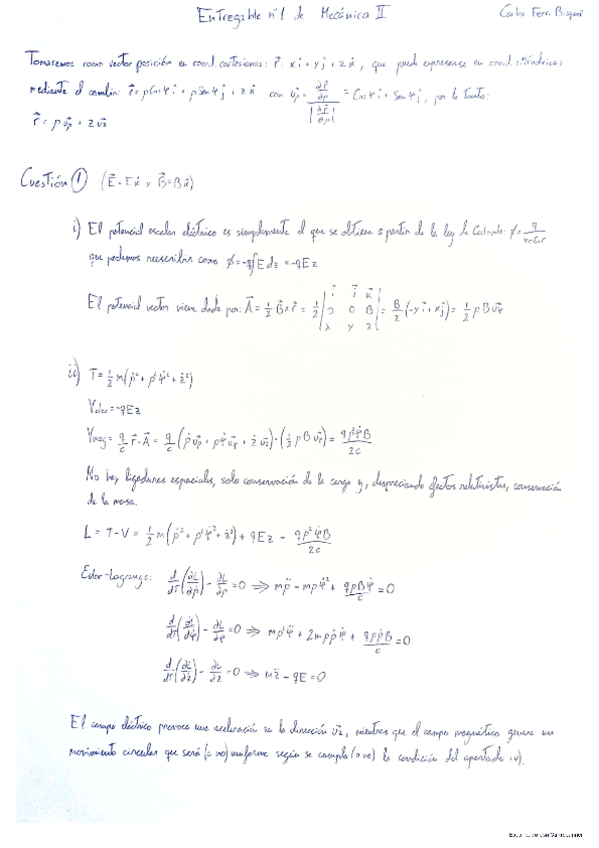 Entregable nº1 de Mecánica II
Carlos Ferr
Tomaremos como vector posición en coord. cartesianas: r⃗ = x i + y j + z k, que puede expresarse en coord. cilíndricas
mediante el cambio: r⃗ = ρ cos φ i + ρ sen φ j + z k con u⃗ρ = (∂r⃗/∂ρ)/|∂r⃗/∂ρ| = cos φ i + sen φ j, por lo tanto:
r⃗ = ρ u⃗ρ + z u⃗z
Cuestión ① (E⃗ = E k y B⃗ = B k)
i) El potencial escalar eléctrico es simplemente el que se obtiene a partir de la ley de Coulomb: φ = q/4πε₀r
que podemos reescribir como φ = -q∫E dz = -qEz
El potencial vector viene dado por: A⃗ = 1/2 B⃗ × r⃗ = 1/2 |i j k; 0 0 B; x y z| = B/2 (-y i + x j) = 1/2 ρ B u⃗φ
ii) T = 1/2 m(ρ̇² + ρ²φ̇² + ż²)
Velec = -qEz
Vmag = q/c ṙ⃗·A⃗ = q/c (ρ̇ u⃗ρ + ρφ̇ u⃗φ + ż u⃗z)·(1/2 ρ B u⃗φ) = qρ²φ̇B/2c
No hay ligaduras espaciales, solo conservación de la carga y, despreciando efectos relativistas, conservación
de la masa.
L = T - V = 1/2 m(ρ̇² + ρ²φ̇² + ż²) + qEz - qρ²φ̇B/2c
Euler-Lagrange: d/dt(∂L/∂ρ̇) - ∂L/∂ρ = 0 ⟹ mρ̈ - mρφ̇² + qρBφ̇/c = 0
d/dt(∂L/∂φ̇) - ∂L/∂φ = 0 ⟹ mρ²φ̈ + 2mρρ̇φ̇ + qρρ̇B/c = 0
d/dt(∂L/∂ż) - ∂L/∂z = 0 ⟹ mz̈ - qE = 0
El campo eléctrico provoca una aceleración en la dirección u⃗z, mientras que el campo magnético genera un
movimiento circular que será (o no) uniforme según se cumpla (o no) la condición del apartado iv).